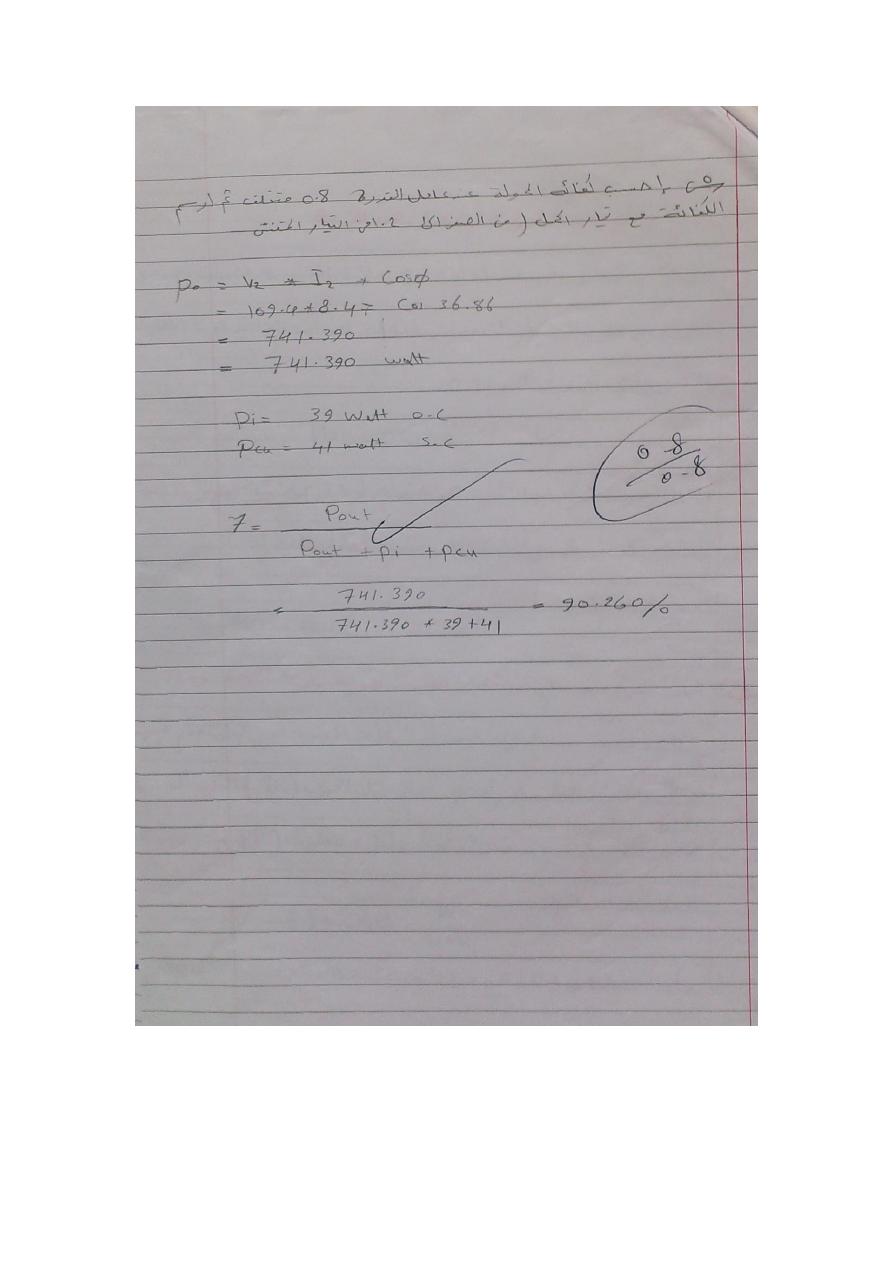 س٥ / احسب كفائة المحولة عند عامل القدرة 0.8 متخلف ثم ارسم
الكفائة مع تيار الحمل ( من الصفر الى 1.2 من التيار
Po = V2 * I2 * Cosφ
= 109.4 * 8.47 Cos 36.86
= 741.390
= 741.390 watt
Pi = 39 Watt O.C
Pcu = 41 watt S.C
0.8
0.8
7 = Pout
Pout + Pi + Pcu
= 741.390 = 90.260%
741.390 * 39 + 41